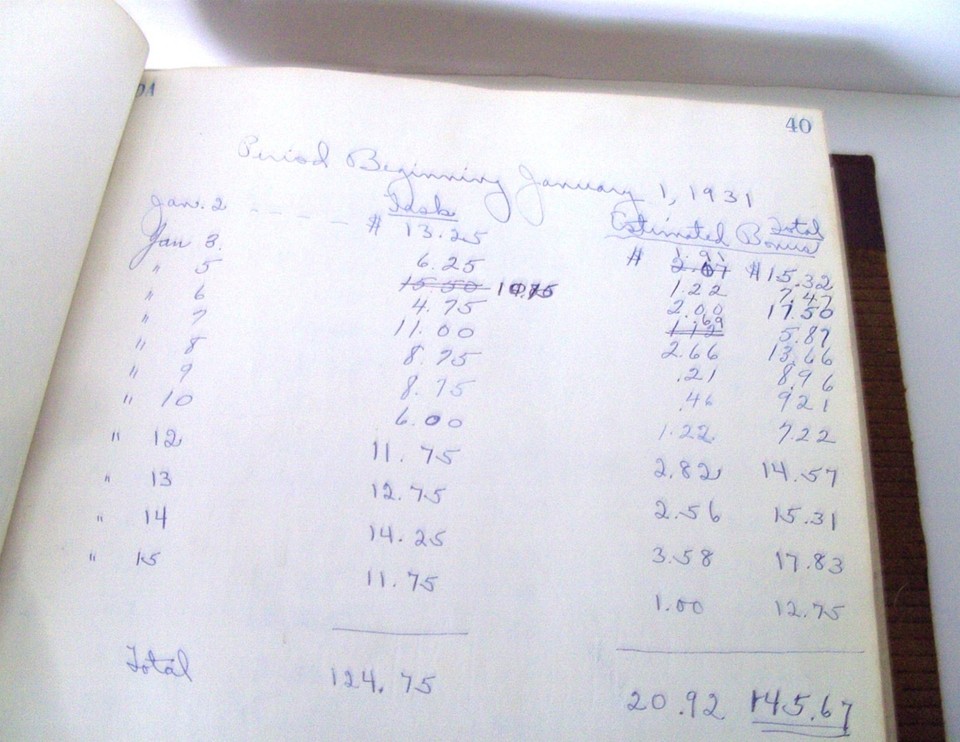 DA
40
Period Beginning January 1, 1931
Task Estimated Bonus Total
Jan. 2 - - - - $ 13.25 $ 1.91 2.07 $15.32
Jan 3. 6.25 1.22 7.47
" 5 15.50 2.00 17.50
" 6 4.75 1.12 5.87
" 7 11.00 2.66 13.66
" 8 8.75 .21 8.96
" 9 8.75 .46 921
" 10 6.00 1.22 7.22
" 12 11.75 2.82 14.57
" 13 12.75 2.56 15.31
" 14 14.25 3.58 17.83
" 15 11.75 1.00 12.75
Total 124.75 20.92 145.67